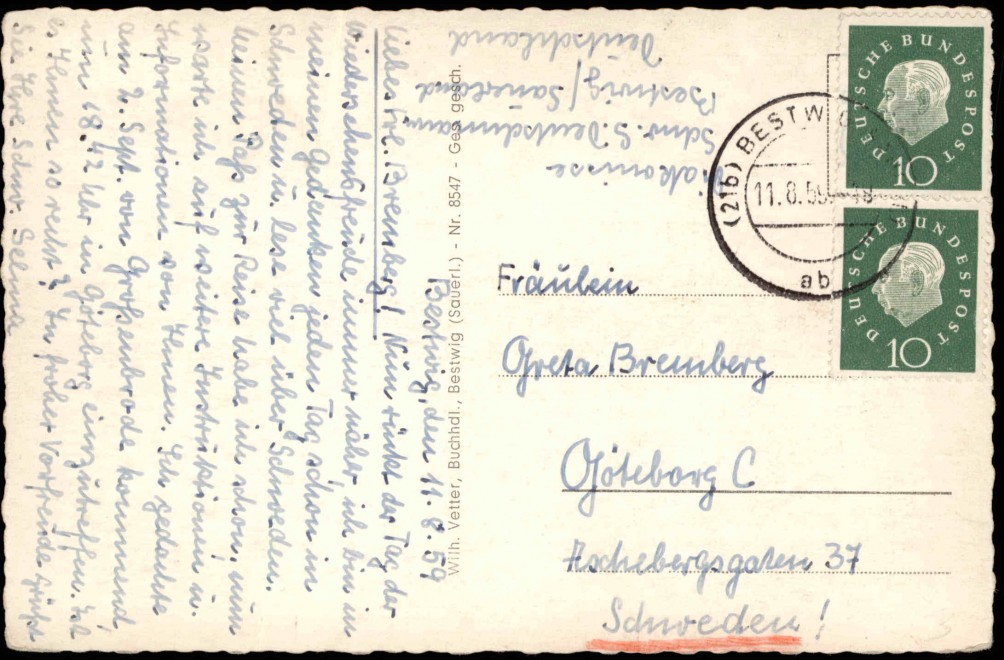 Bestwig, den 11.8.59
Liebes Frl. Bremberg! Nun rückt der Tag der
Wiedersehensfreude immer näher, ich bin in
meinen Gedanken jeden Tag schon in
Schweden u. lese viel über Schweden.
Meinen Paß zur Reise habe ich schon, nun
warte ich auf weitere Instruktionen u.
Informationen von Ihnen. Ich gedachte
am 2. Sept. von Großenbrode kommend
um 18.42 Uhr in Göteborg einzutreffen. Ist
es Ihnen so recht? In froher Vorfreude grüßt
Sie Ihre Schw. Selma
Diakonisse
Schw. S. Deutschmann
Bestwig/Sauerland
Deutschland
Wilh. Vetter, Buchhdl., Bestwig (Sauerl.) - Nr. 8547 - Ges. gesch.
DEUTSCHE BUNDESPOST
10
DEUTSCHE BUNDESPOST
10
(21b) BESTW
11.8.59
18
ab
Fräulein
Greta Bremberg
Göteborg C
Aschebergsgaten 37
Schweden!